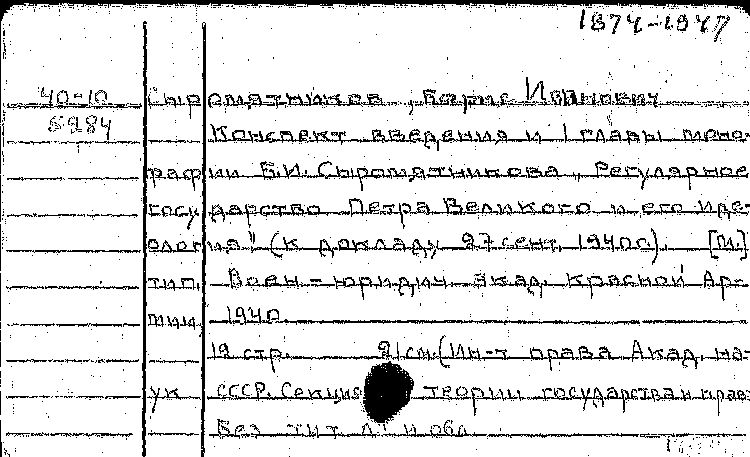 1874-1947
40-10 Сыромятников, Борис Иванович
5284 Конспект введения и I главы моно-
графии Б.И. Сыромятникова „Регулярное
государство Петра Великого и его иде-
ология" (к докладу 27 сент. 1940г.). [М.]
тип. Воен-юридич. акад. Красной Ар-
мии, 1940.
19 стр. 21 см. (Ин-т права Акад. на-
ук СССР. Секция теории государства и права
Без тит. л. и обл.